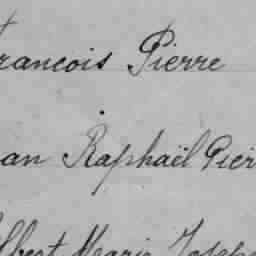 rancois Pierre
an Raphaël Pier
lbert Marie Joseph